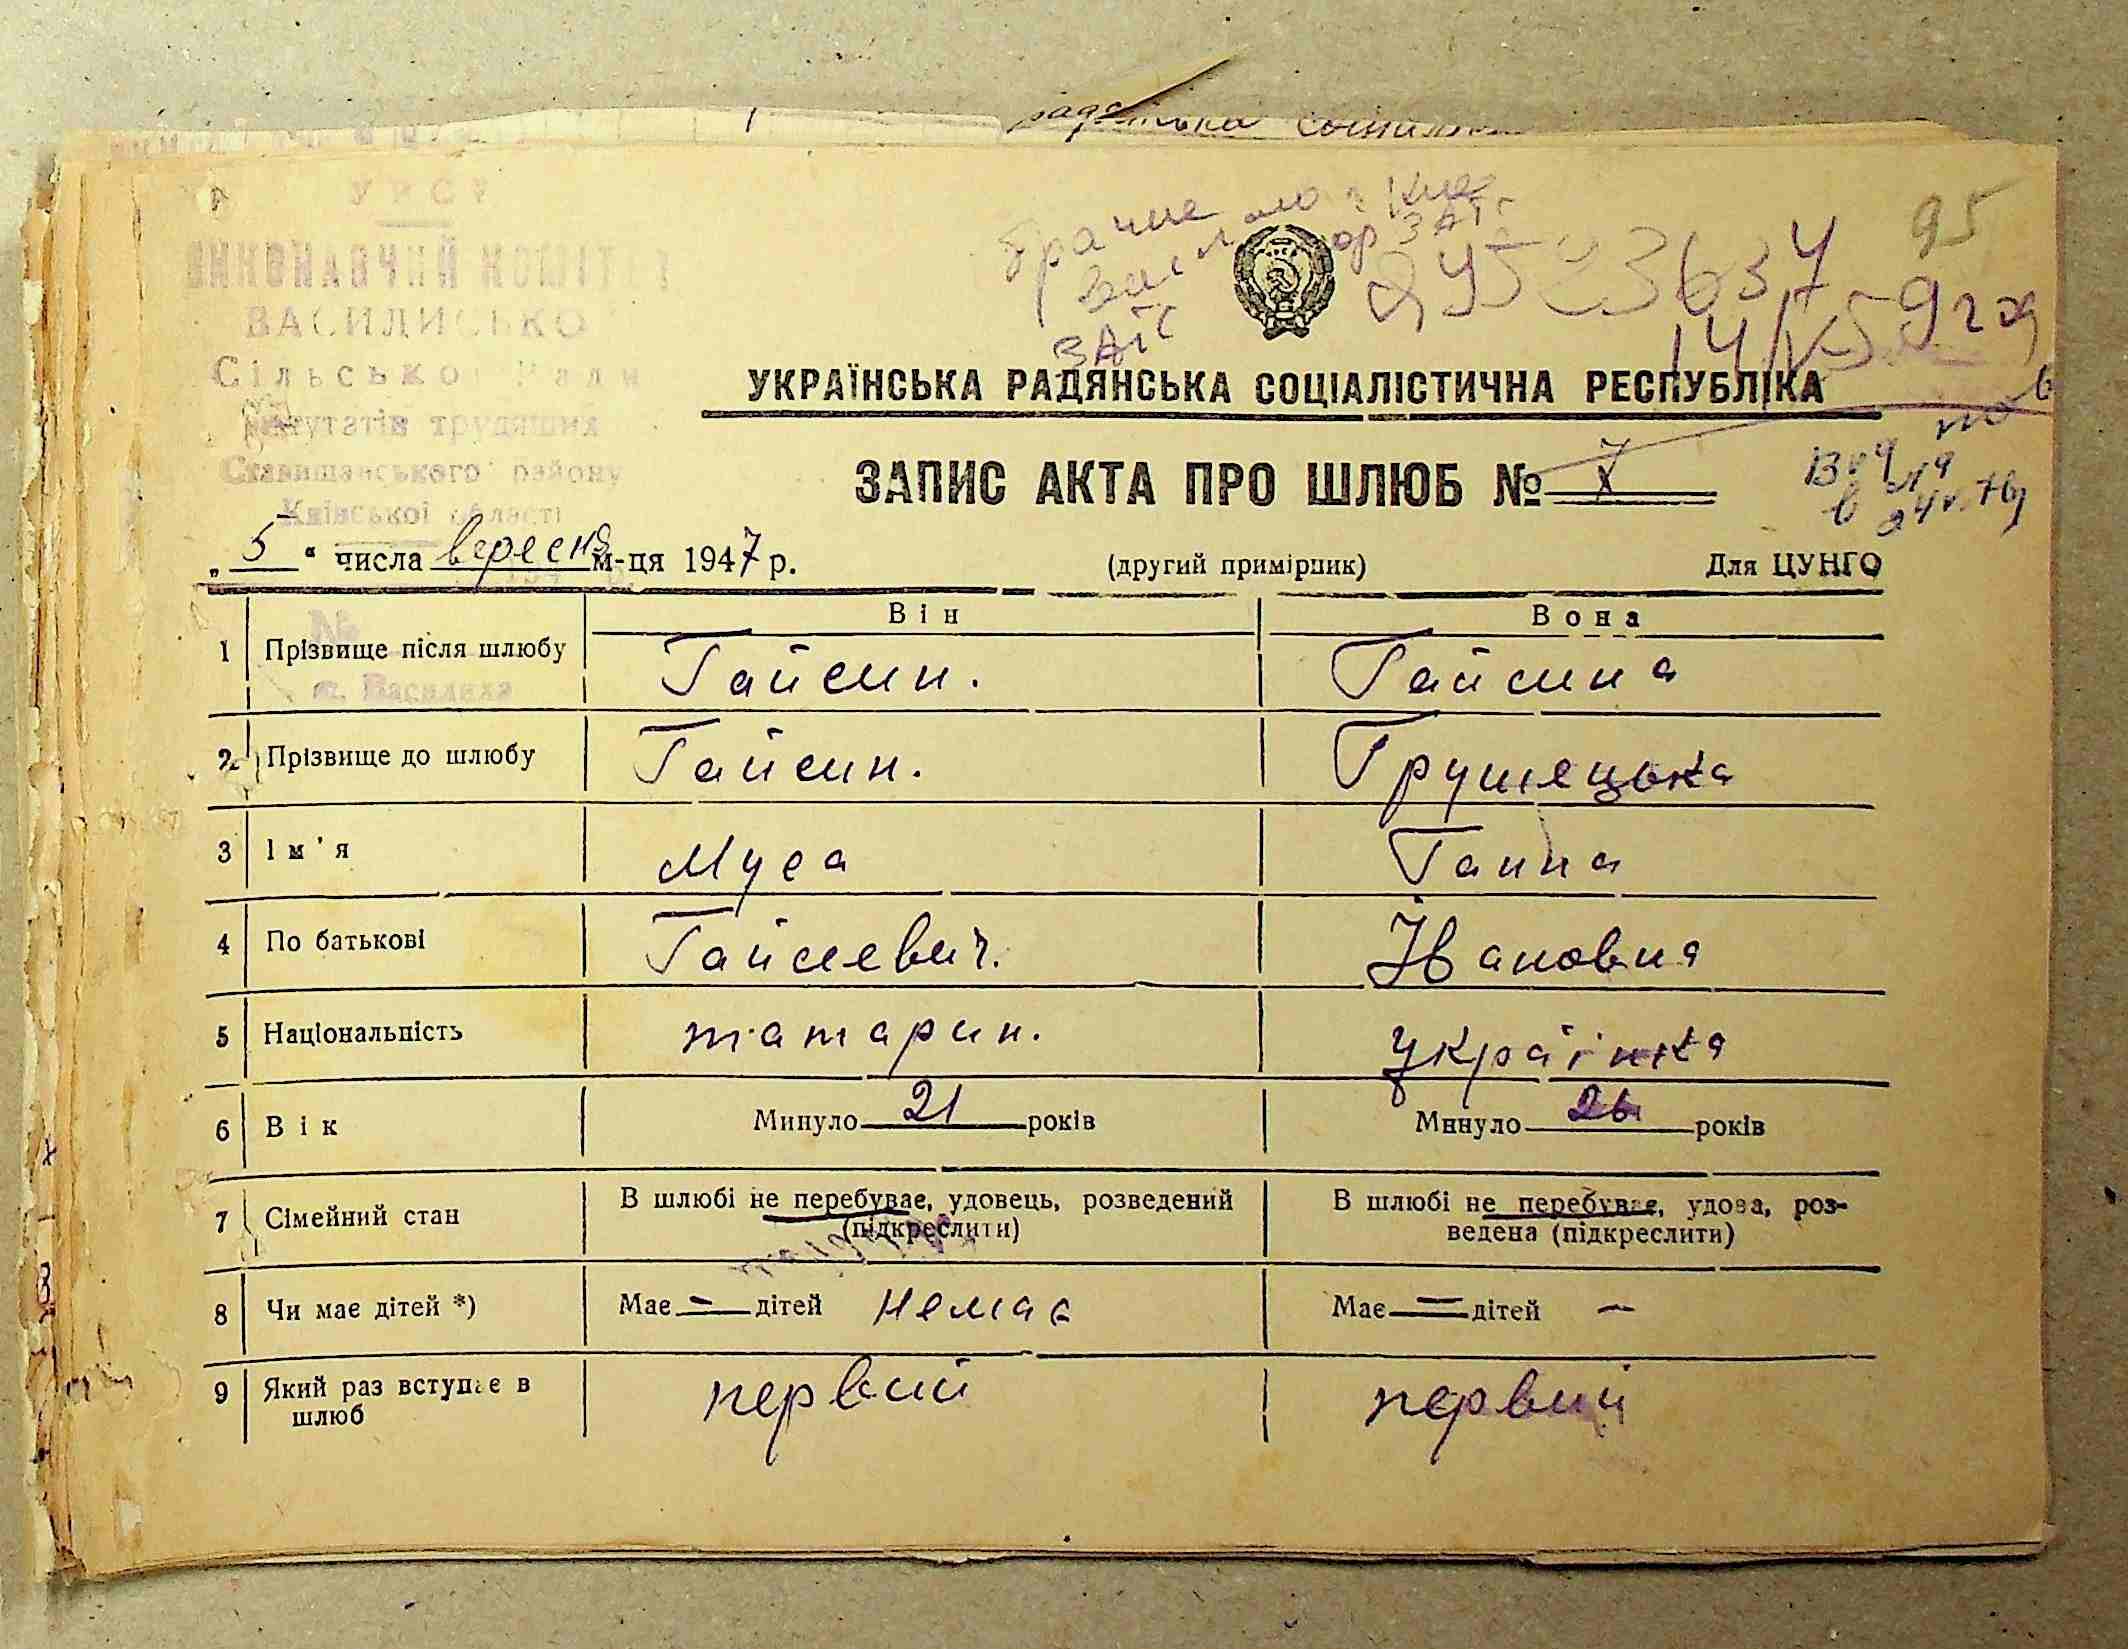 УРСР
ВИКОНАВЧИЙ КОМІТЕТ
ВАСИЛИСЬКО
Сільської Ради
депутатів трудящих
Ставищанського району
Київської області
95
14/V-59
УКРАЇНСЬКА РАДЯНСЬКА СОЦІАЛІСТИЧНА РЕСПУБЛІКА
ЗАПИС АКТА ПРО ШЛЮБ №
„5“ числа вересня м-ця 1947 р. (другий примірник) Для ЦУНГО
Він Вона
№
1 Прізвище після шлюбу Гайсин. Гайсина
с. Василиха
2 Прізвище до шлюбу Гайсин. Грушецька
3 Ім'я Муса Ганна
4 По батькові Гайсеевич. Івановна
5 Національність татарин. українка
6 Вік Минуло 21 років Минуло 26 років
7 Сімейний стан В шлюбі не перебуває, удовець, розведений В шлюбі не перебуває, удова, роз-
(підкреслити) ведена (підкреслити)
8 Чи має дітей *) Має — дітей немає Має — дітей —
9 Який раз вступає в первий первий
шлюб